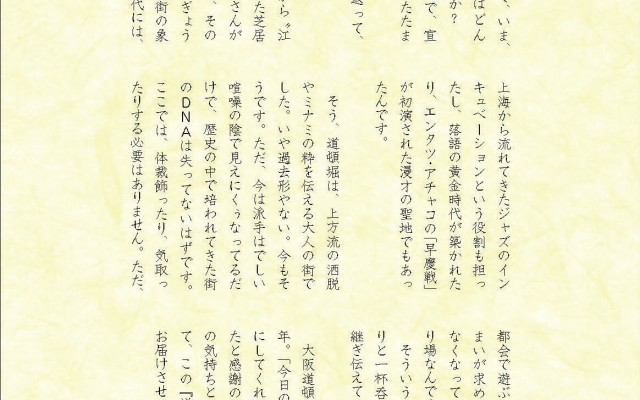 、いま、
はどん
か？
で、宣
たたま
って、
ら〝江
た芝居
さんが
、その
ぎょう
街の象
代には、
上海から流れてきたジャズのイン
キュベーションという役割も担っ
たし、落語の黄金時代が築かれた
り、エンタツ・アチャコの「早慶戦」
が初演された漫才の聖地でもあっ
たんです。
そう、道頓堀は、上方流の洒脱
やミナミの粋を伝える大人の街で
した。いや過去形やない。今もそ
うです。ただ、今は派手はでしい
喧噪の陰で見えにくぅなってるだ
けで、歴史の中で培われてきた街
のDNAは失ってないはずです。
ここでは、体裁飾ったり、気取っ
たりする必要はありません。ただ、
都会で遊ぶ
まいが求め
なくなって
り場なんで
そういう
りと一杯呑
継ぎ伝えて
大阪道頓
年。「今日の
にしてくれ
たと感謝の
の気持ちと
て、この『
お届けさせ